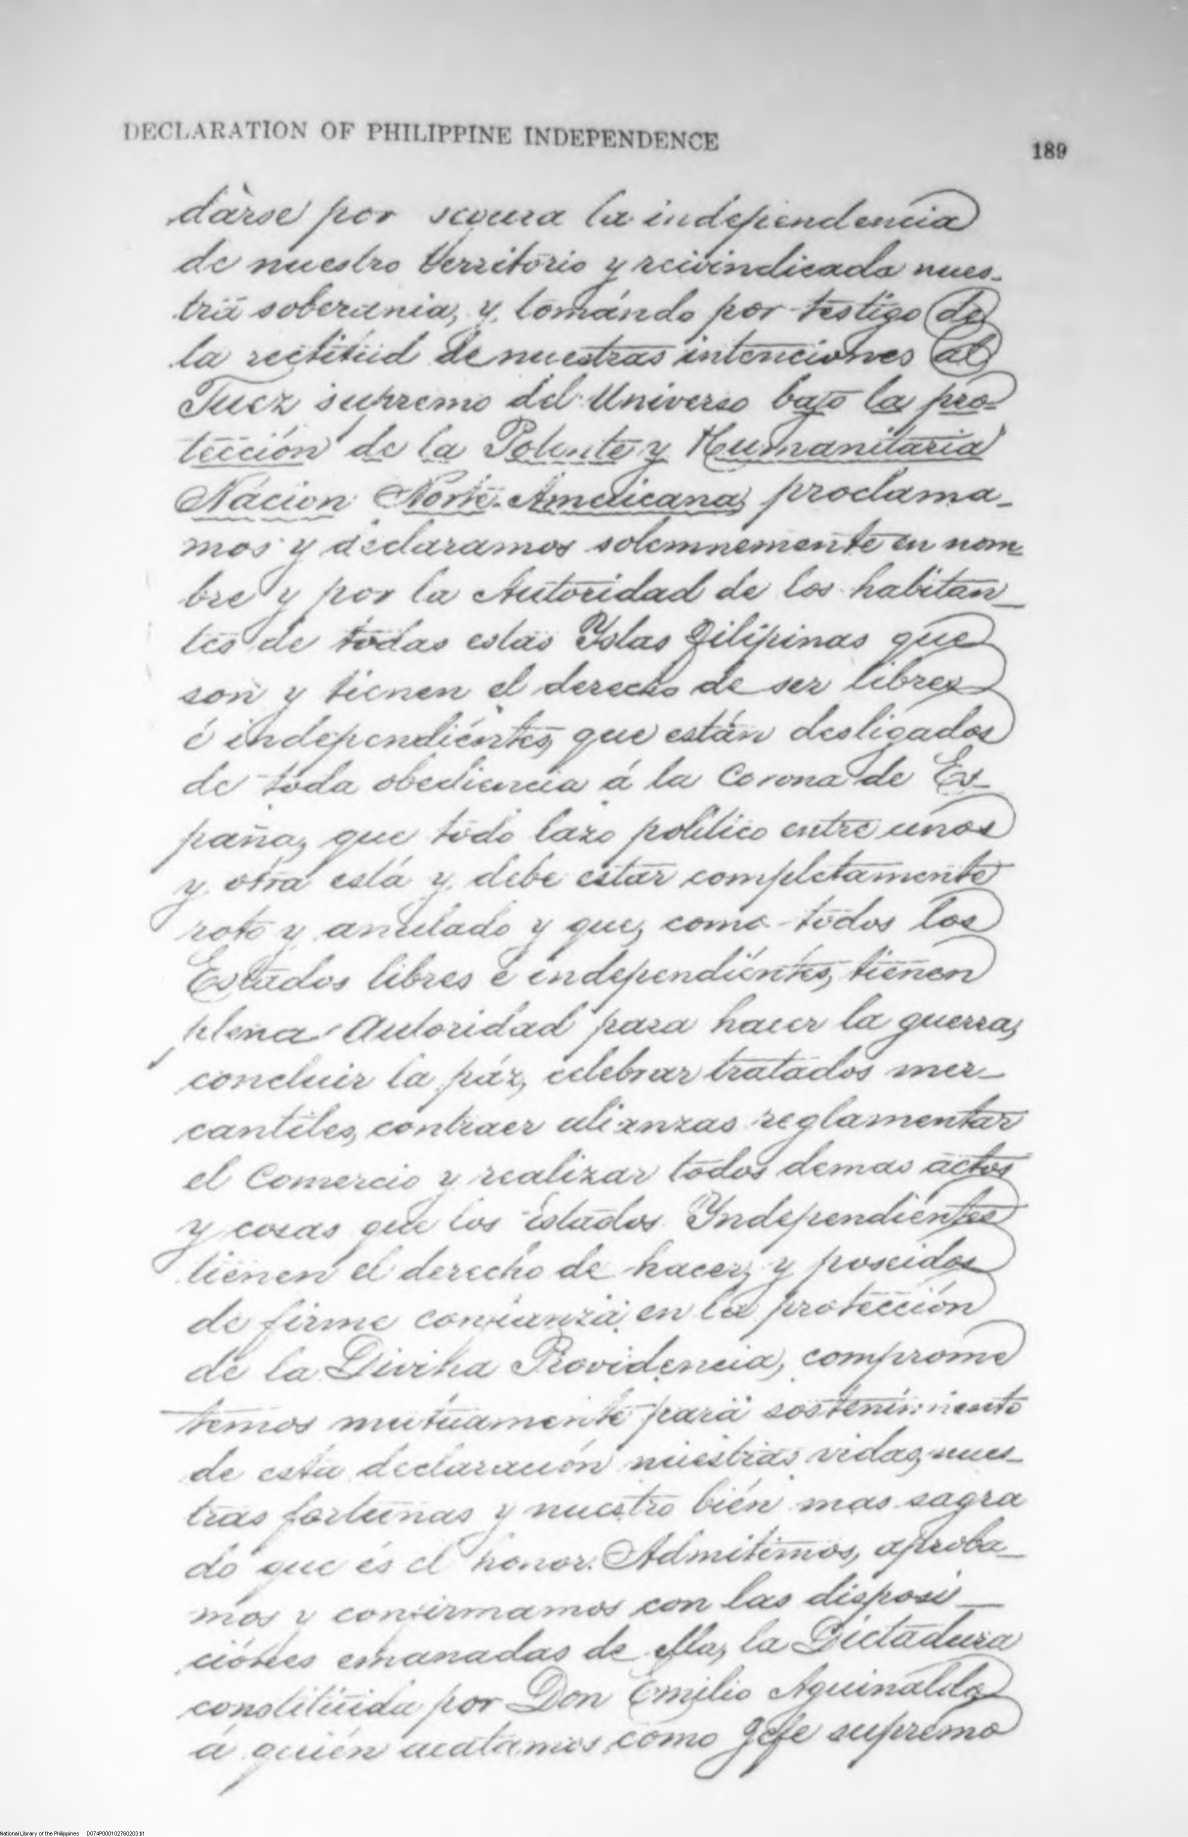 DECLARATION OF PHILIPPINE INDEPENDENCE 189
dàrse por segura la independencia
de nuestro territorio y reivindicada nues-
tra soberania, y tomándo por testigo de
la rectitud de nuestras intenciones al
Juez supremo del Universo bajo la pro-
tección de la Potente y Humanitaria
Nácion Norte-Americana, proclama-
mos y declaramos solemnemente en nom-
bre y por la Autoridad de los habitan-
tes de todas estas Yslas Filipinas que
son y tienen el derecho de ser libres
é independiéntes, que están desligados
de toda obediencia á la Corona de Es-
paña, que todo lazo politico entre unos
y otra está y debe estar completamente
roto y anulado y que, como todos los
Estados libres é independiéntes, tienen
plena Autoridad para hacer la guerra,
concluir la páz, celebrar tratados mer-
cantiles, contraer alianzas reglamentar
el Comercio y realizar todos demas actos
y cosas que los Estados Yndependientes
tienen el derecho de hacer, y poseidos
de firme confianza en la protección
de la Divina Providencia, comprome
temos mutuamente para sostenimiento
de esta declaración nuestras vidas, nues-
tras fortunas y nuestro bién mas sagra
do que és el honor. Admitimos, aproba-
mos y confirmamos con las disposi-
ciónes emanadas de ella, la Dictadura
constituida por Don Emilio Aguinaldo
á quién acatamos como Gefe supremo
National Library of the Philippines